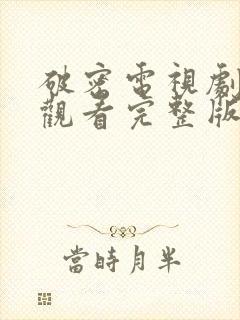 破密電視劇
觀看完整版
當時月半